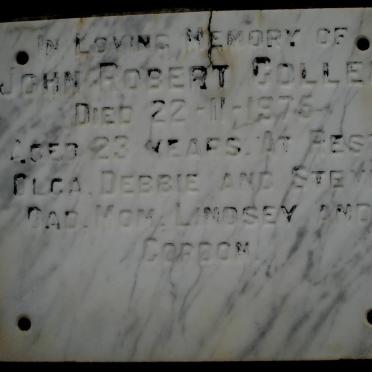 IN LOVING MEMORY OF
JOHN ROBERT COLLE
DIED 22-11-1975
AGED 23 YEARS. AT REST
OLGA, DEBBIE AND STEV
DAD, MOM, LINDSEY AND
GORDON